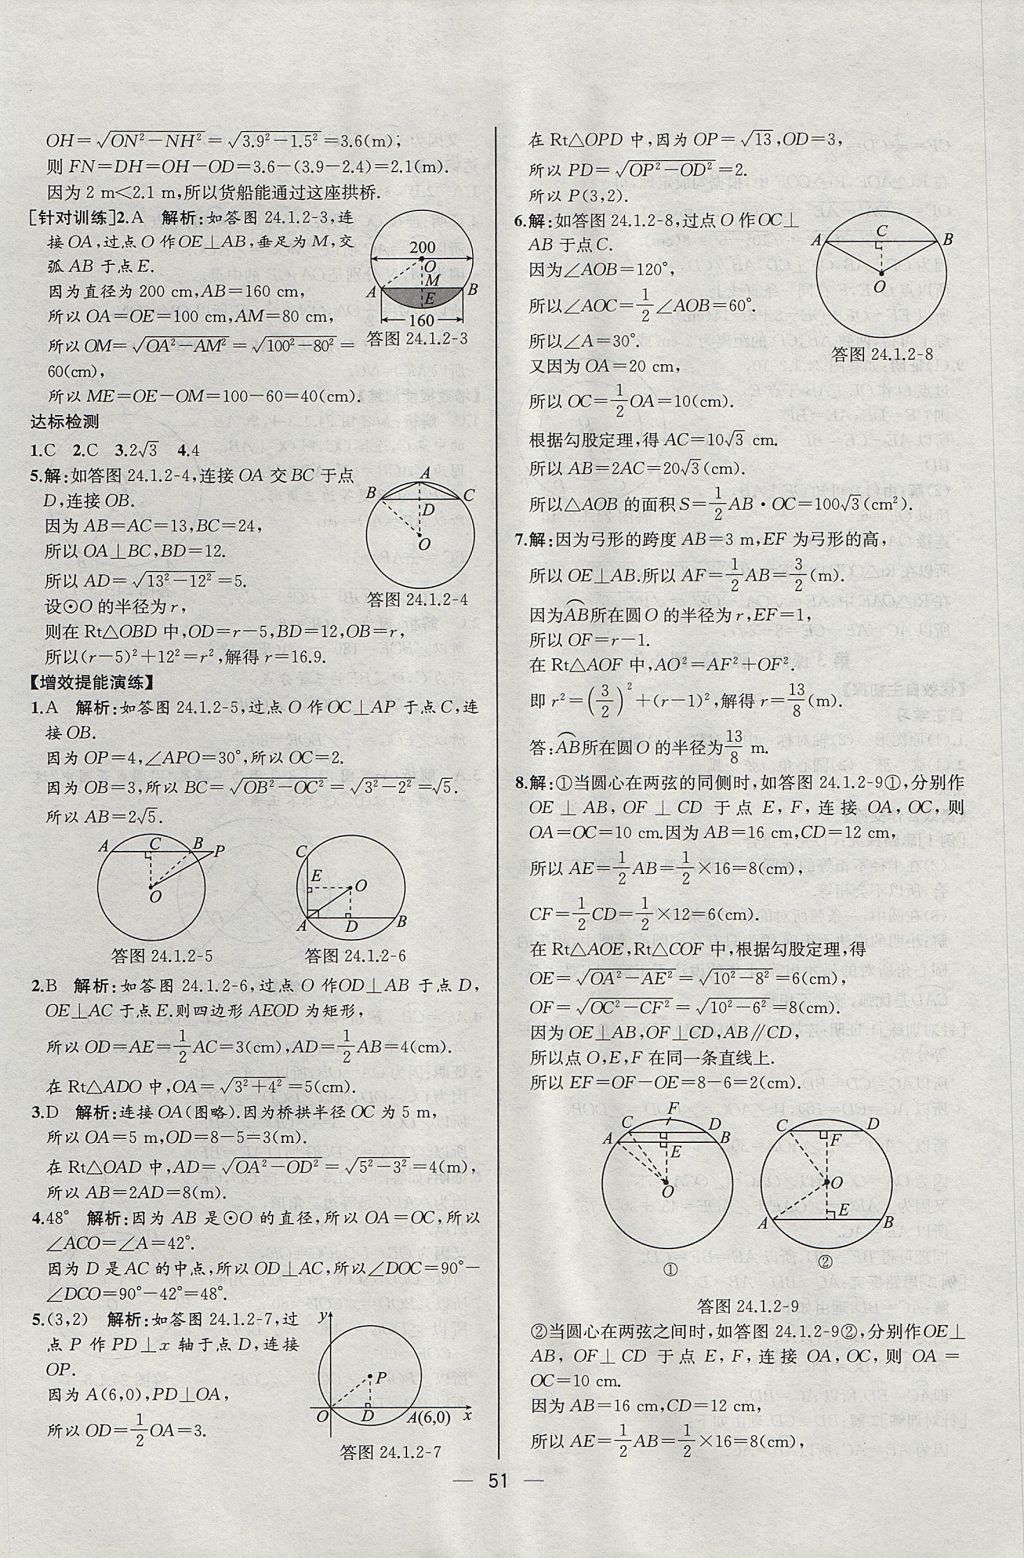 OH=√(ON²-NH²)=√(3.9²-1.5²)=3.6(m);
则 FN=DH=OH-OD=3.6-(3.9-2.4)=2.1(m).
因为 2 m<2.1 m,所以货船能通过这座拱桥.
[针对训练]2.A 解析:如答图 24.1.2-3,连
接 OA,过点 O 作OE⊥AB,垂足为 M,交
弧 AB 于点 E.
因为直径为 200 cm,AB=160 cm,
所以 OA=OE=100 cm,AM=80 cm,
所以 OM=√(OA²-AM²)=√(100²-80²)=
60(cm),
所以 ME=OE-OM=100-60=40(cm).
200
O
M
A
E
B
160
答图 24.1.2-3
达标检测
1.C 2.C 3.2√3 4.4
5.解:如答图 24.1.2-4,连接 OA 交 BC 于点
D,连接 OB.
因为 AB=AC=13,BC=24,
所以 OA⊥BC,BD=12.
所以 AD=√(13²-12²)=5.
设⊙O 的半径为 r,
则在 Rt△OBD 中,OD=r-5,BD=12,OB=r,
所以(r-5)²+12²=r²,解得 r=16.9.
A
B
C
D
O
答图 24.1.2-4
【增效提能演练】
1.A 解析:如答图 24.1.2-5,过点 O 作 OC⊥AP 于点 C,连
接 OB.
因为 OP=4,∠APO=30°,所以 OC=2.
因为 OB=3,所以 BC=√(OB²-OC²)=√(3²-2²)=√5.
所以 AB=2√5.
A
C
B
P
O
答图 24.1.2-5
C
E
O
A
D
B
答图 24.1.2-6
2.B 解析:如答图 24.1.2-6,过点 O 作OD⊥AB 于点 D,
OE⊥AC 于点 E.则四边形 AEOD 为矩形,
所以 OD=AE=1/2AC=3(cm),AD=1/2AB=4(cm).
在 Rt△ADO 中,OA=√(3²+4²)=5(cm).
3.D 解析:连接 OA(图略).因为桥拱半径 OC 为 5 m,
所以 OA=5 m,OD=8-5=3(m).
在 Rt△OAD 中,AD=√(OA²-OD²)=√(5²-3²)=4(m),
所以 AB=2AD=8(m).
4.48° 解析:因为 AB 是⊙O 的直径,所以 OA=OC,所以
∠ACO=∠A=42°.
因为 D 是 AC 的中点,所以 OD⊥AC,所以∠DOC=90°-
∠DCO=90°-42°=48°.
5.(3,2) 解析:如答图 24.1.2-7,过
点 P 作 PD⊥x 轴于点 D,连接
OP.
因为 A(6,0),PD⊥OA,
所以 OD=1/2OA=3.
y
P
O
D
A(6,0)
x
答图 24.1.2-7
在 Rt△OPD 中,因为 OP=√13,OD=3,
所以 PD=√(OP²-OD²)=2.
所以 P(3,2).
6.解:如答图 24.1.2-8,过点 O 作OC⊥
AB 于点 C.
因为∠AOB=120°,
所以∠AOC=1/2∠AOB=60°.
所以∠A=30°.
又因为 OA=20 cm,
所以 OC=1/2OA=10(cm).
根据勾股定理,得 AC=10√3 cm.
所以 AB=2AC=20√3(cm).
所以△AOB 的面积 S=1/2AB·OC=100√3(cm²).
A
C
B
O
答图 24.1.2-8
7.解:因为弓形的跨度 AB=3 m,EF 为弓形的高,
所以 OE⊥AB.所以 AF=1/2AB=3/2(m).
因为⌒AB所在圆 O 的半径为 r,EF=1,
所以 OF=r-1.
在 Rt△AOF 中,AO²=AF²+OF².
即 r²=(3/2)²+(r-1)²,解得 r=13/8(m).
答:⌒AB所在圆 O 的半径为13/8 m.
8.解:①当圆心在两弦的同侧时,如答图 24.1.2-9①,分别作
OE⊥AB,OF⊥CD 于点 E,F,连接 OA,OC,则
OA=OC=10 cm.因为 AB=16 cm,CD=12 cm,
所以 AE=1/2AB=1/2×16=8(cm),
CF=1/2CD=1/2×12=6(cm).
在 Rt△AOE,Rt△COF 中,根据勾股定理,得
OE=√(OA²-AE²)=√(10²-8²)=6(cm),
OF=√(OC²-CF²)=√(10²-6²)=8(cm).
因为 OE⊥AB,OF⊥CD,AB∥CD,
所以点 O,E,F 在同一条直线上.
所以 EF=OF-OE=8-6=2(cm).
F
C
D
A
B
E
O
①
C
D
F
O
A
E
B
②
答图 24.1.2-9
②当圆心在两弦之间时,如答图 24.1.2-9②,分别作OE⊥
AB,OF⊥CD 于点 E,F,连接 OA,OC,则 OA=
OC=10 cm.
因为 AB=16 cm,CD=12 cm,
所以 AE=1/2AB=1/2×16=8(cm),
— 51 —